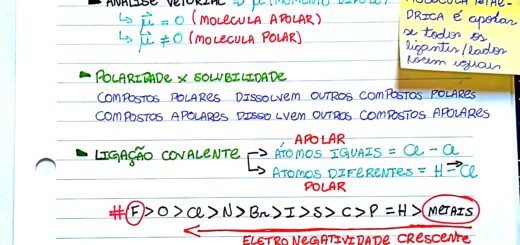 ANÁLISE VETORIAL => μ (MOMENTO DIPOLO)
↳ μ = 0 (MOLÉCULA APOLAR)
↳ μ ≠ 0 (MOLÉCULA POLAR)
MOLÉCULA TETAE-
DRICA é apolar
se todos os
ligantes/lados
forem iguais
POLARIDADE x SOLUBILIDADE
COMPOSTOS POLARES DISSOLVEM OUTROS COMPOSTOS POLARES
COMPOSTOS APOLARES DISSOLVEM OUTROS COMPOSTOS APOLARES
APOLAR
LIGAÇÃO COVALENTE → ÁTOMOS IGUAIS = Cl - Cl
→ ÁTOMOS DIFERENTES = H - Cl
POLAR
# F > O > Cl > N > Br > I > S > C > P = H > METAIS
ELETRONEGATIVIDADE CRESCENTE